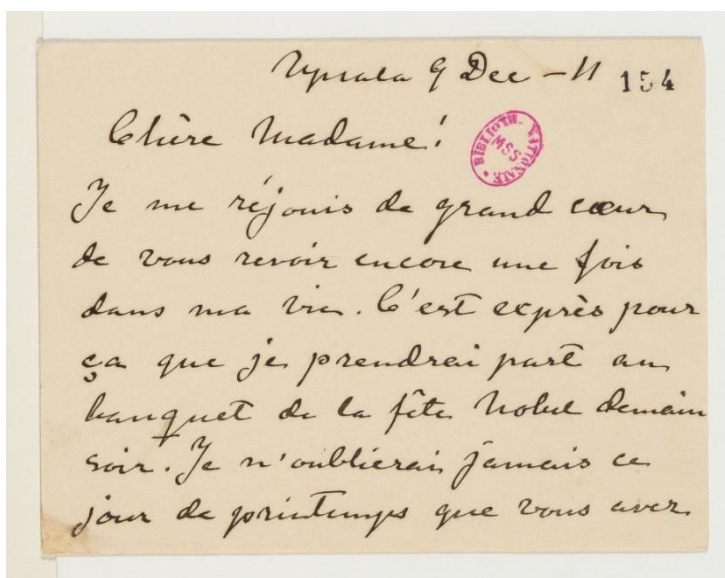 Upsala 9 Dec – 11 154
Chère Madame!
BIBLIOTH. NATIONALE MSS
Je me réjouis de grand cœur
de vous revoir encore une fois
dans ma vie. C'est exprès pour
ça que je prendrai part au
banquet de la fête Nobel demain
soir. Je n'oublierai jamais ce
jour de printemps que vous avez